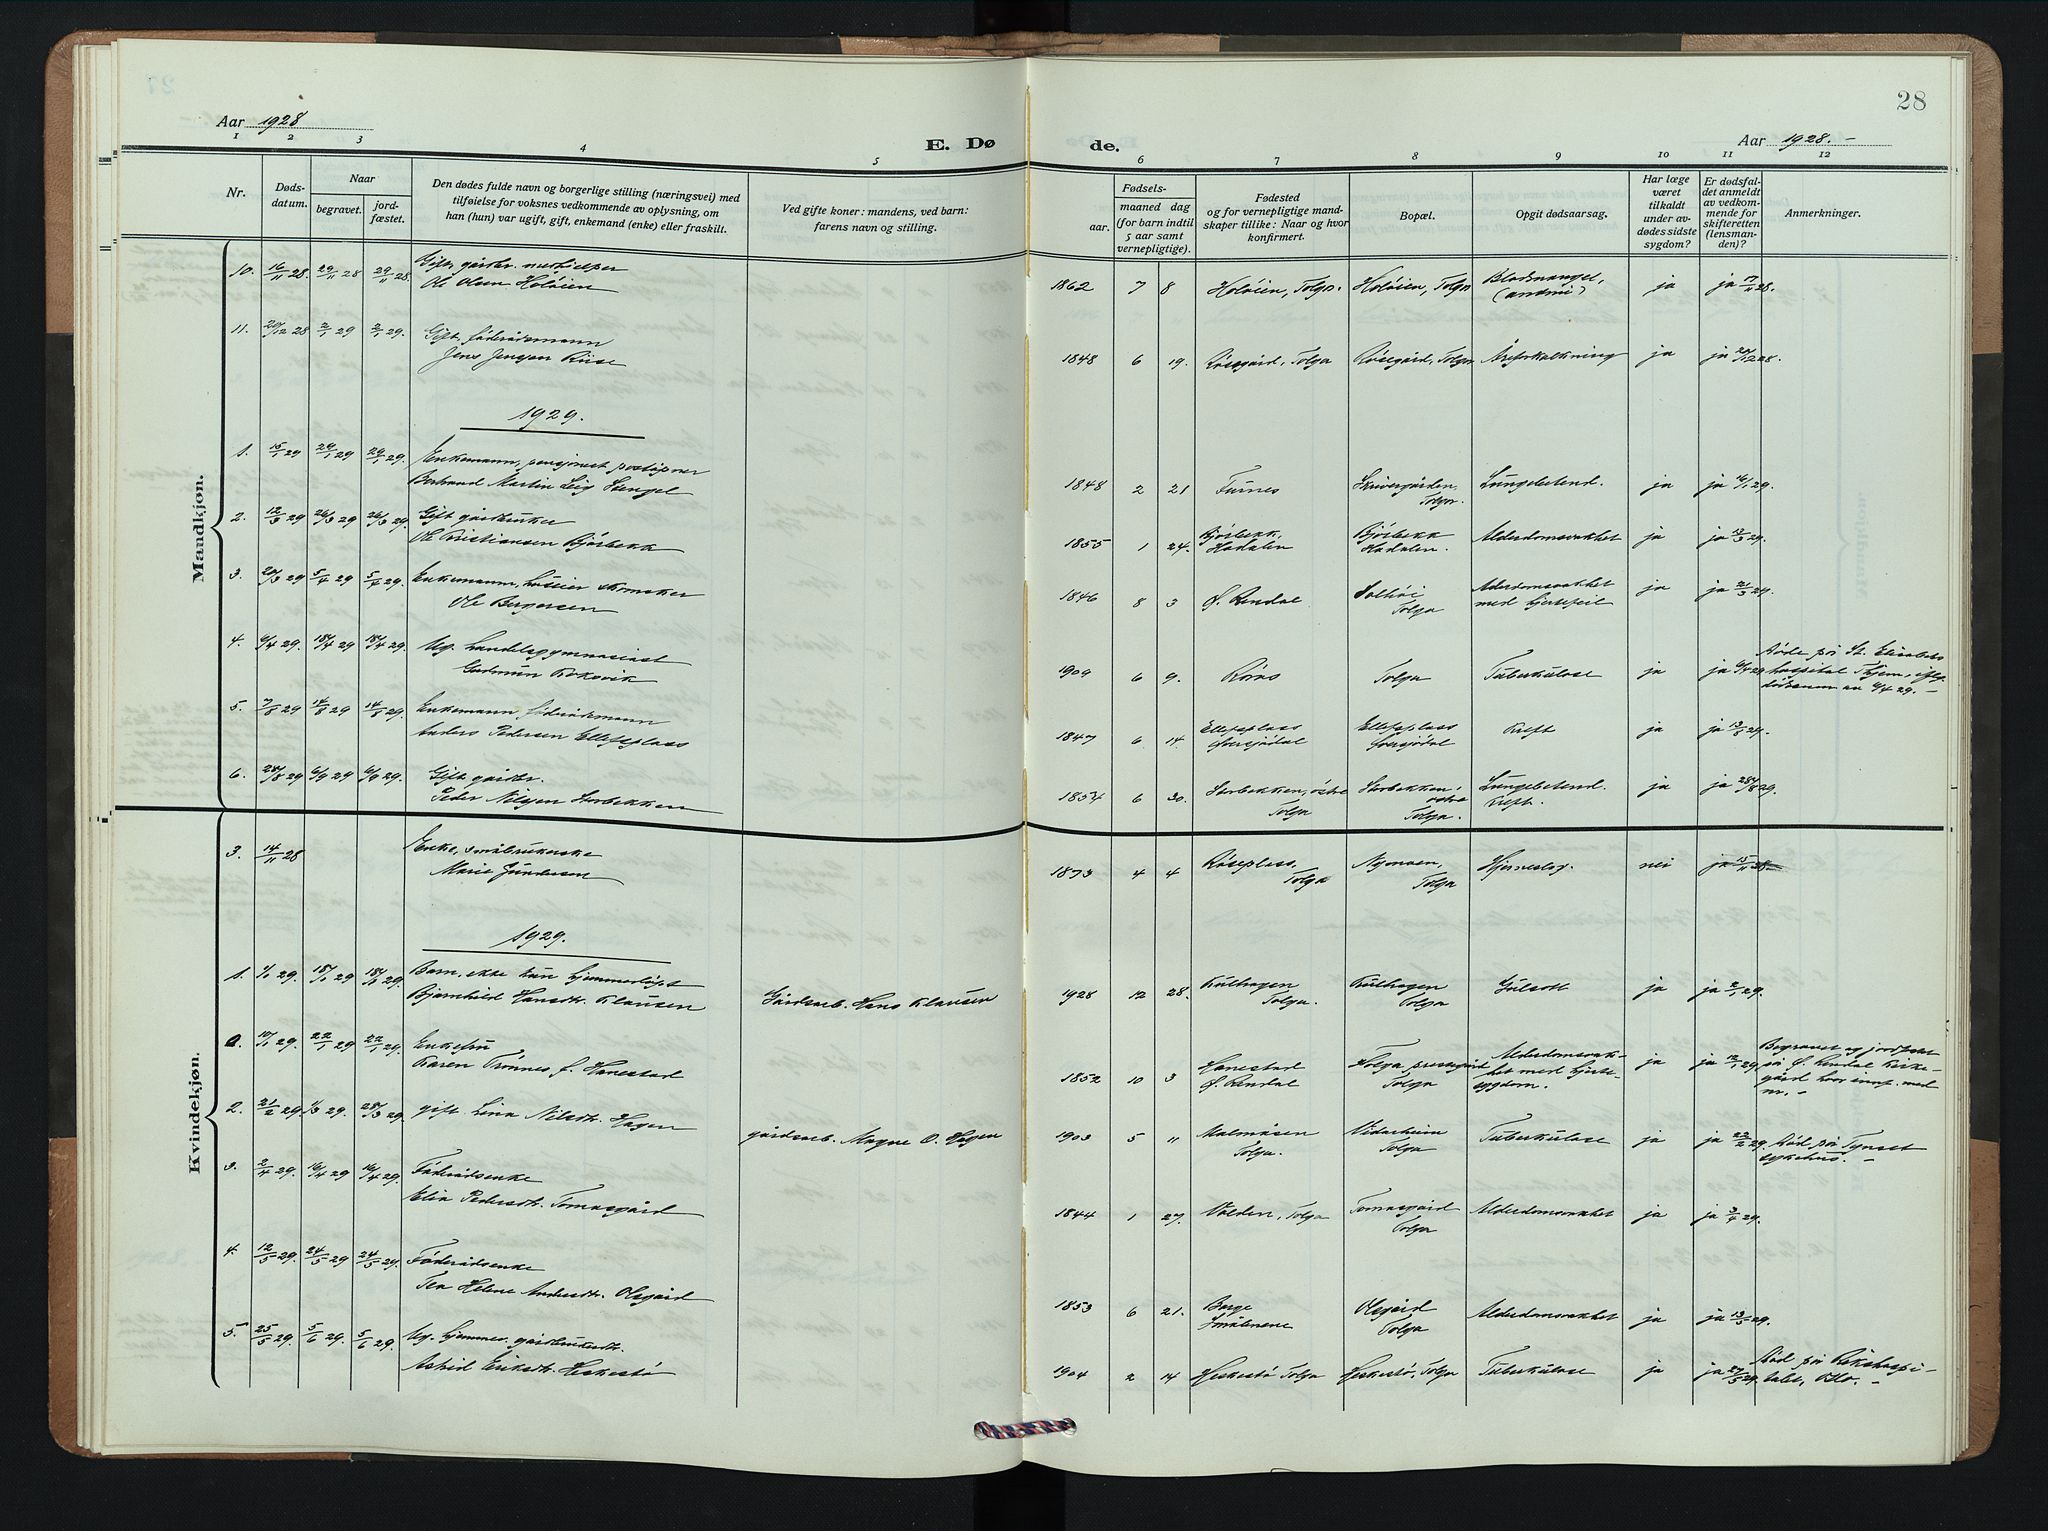 28
Aar 1928
Aar 1928.-
E. Dø
de.
1 2 3 4 5 6 7 8 9 10 11 12
Nr.
Døds-
datum.
Naar
begravet.
jord-
fæstet.
Den dødes fulde navn og borgerlige stilling (næringsvei) med
tilføielse for voksnes vedkommende av oplysning, om
han (hun) var ugift, gift, enkemand (enke) eller fraskilt.
Ved gifte koner: mandens, ved barn:
farens navn og stilling.
Fødsels-
aar.
maaned dag
(for barn indtil
5 aar samt
vernepligtige).
Fødested
og for vernepligtige mand-
skaper tillike: Naar og hvor
konfirmert.
Bopæl.
Opgit dødsaarsag.
Har læge
været
tilkaldt
under av-
dødes sidste
sygdom?
Er dødsfal-
det anmeldt
av vedkom-
mende for
skifteretten
(lensman-
den)?
Anmerkninger.
Mandkjøn.
10. 16/11 28. 29/11 28 29/11 28. Gift, gårdbr.
Ole Olsen Holøien 1862 7 8 Holøien, Tolga. Holøien, Tolga Blodmangel, ja ja 17/11 28.
11. 20/12 28 2/1 29 2/1 29. Gift føderådsmann
Jens Jensen Riise 1848 6 19. Tolga Tolga Åreforkalkning ja ja
1929.
1. 15/1 29 24/1 29 24/1 29. Enkemann, pensjonist
Martin Stengel 1848 2 21 Furnes Skrivergården, Lungebetend. ja ja 16/1 29.
Tolga.
2. 12/3 29 26/3 29 26/3 29. Gift gårdbruker
Ole Kristiansen Bjørbekk 1855 1 24. Bjørbekk, Bjørbekk Alderdomssvakhet ja ja 13/3 29.
Hodalen Hodalen.
3. 20/3 29 5/4 29 5/4 29. Enkemann, skomaker
Ole Bergersen 1846 8 3 Ø. Rendal Tolga Alderdomssvakhet ja ja 21/3 29.
med hjertefeil
4. 6/4 29. 18/4 29 18/4 29. Ug. handelsgymnasiast
Kokvik 1909 6 9. Røros Tolga Tuberkulose ja ja Døde på St. Elisabeths
hospital
5. 7/8 29 14/8 29 14/8 29. Enkemann føderådsmann
Anders Pedersen Ellefsplass 1847 6 14. Ellefsplass Ellefsplass Kreft ja ja 13/8 29.
6. 24/8 29 6/9 29 6/9 29. Gift gårdbr.
Peder Nilsen Storbekken 1854 6 30. Storbekken, østre Storbekken, Lungebetend. ja ja 28/8 29.
Tolga østre Kreft.
Tolga.
Kvindekjøn.
3. 14/11 28 Enke, småbrukerske
Marie Gundersen 1873 4 4 Tolga Tolga Hjerneslag. nei ja 15/11 28
1929.
1. 1/1 29. 18/1 29 18/1 29. Barn, ikke hun hjemmedøpt
Bjarnhild Hansdtr. Klausen Gårdsarb. Hans Klausen 1928 12 28. Kulhagen Kulhagen Gulsott ja ja 2/1 29.
Tolga. Tolga
10/1 29. 22/1 29 22/1 29. Enkefru
Karen Trønnes f. Hanestad 1852 10 3 Hanestad Tolga prestegård Alderdomssvak- ja ja 12/1 29. Begravet og jordfæstet
Ø. Rendal Tolga het med hjerte- på Ø. Rendal kirke-
sygdom. gård hvor innf. med
nr. -
2. 21/2 29 1/3 29. 28/3 29. gift Lina Nilsdtr. Hagen gårdsarb. Magne O. Hagen 1903 5 11 Malmåsen Vidarheim Tuberkulose ja ja 22/2 29. Død på Tynset
Tolga. Tolga sykehus. -
3. 2/4 29 16/4 29 16/4 29. Føderådsenke
Elin Pedersdtr. Tomasgård 1844 1 27. Volden, Tolga Tomasgård Alderdomssvakhet ja ja 3/4 29.
Tolga
4. 12/5 29. 24/5 29 24/5 29. Føderådsenke
Tea Helene Andersdtr. Olsgård 1853 6 21. Berge Olsgård Alderdomssvakhet ja ja 13/5 29.
Smålenene Tolga
5. 25/5 29. 5/6 29. 5/6 29. Ug. hjemmev. gårdbrukerdtr.
Astrid Eriksdtr. Heskestø 1904 2 14 Heskestø Tolga Heskestø, Tolga Tuberkulose ja ja 27/5 29. Død på Rikshospi-
talet, Oslo. -